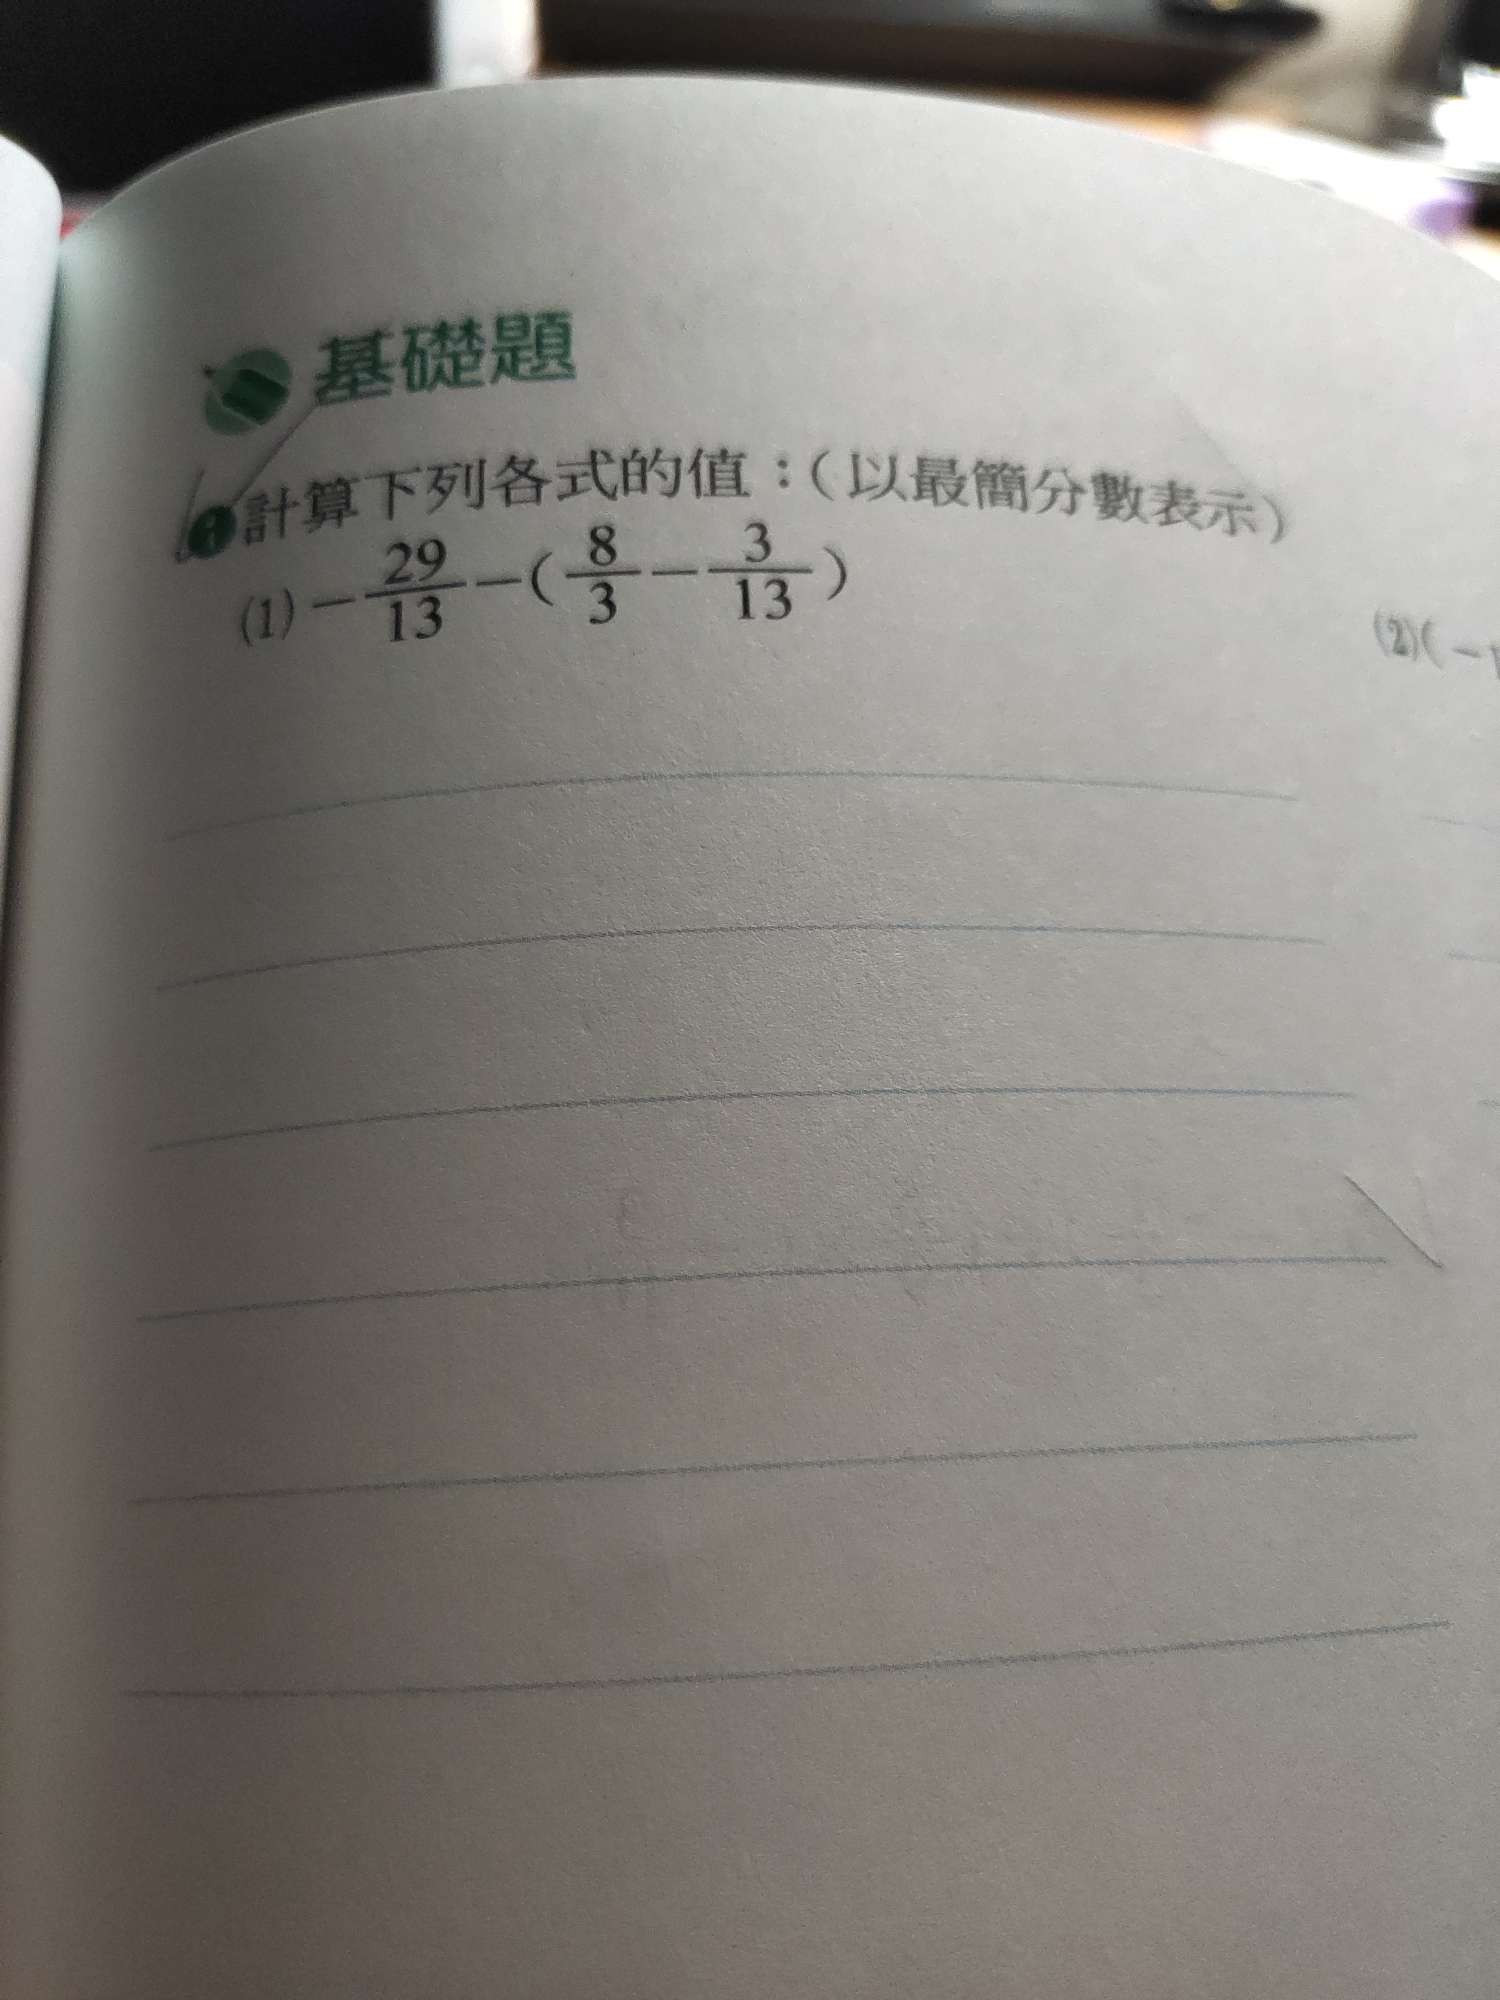 基礎題
1 計算下列各式的值：（以最簡分數表示）
(1) −29/13−(8/3−3/13)
(2)(−